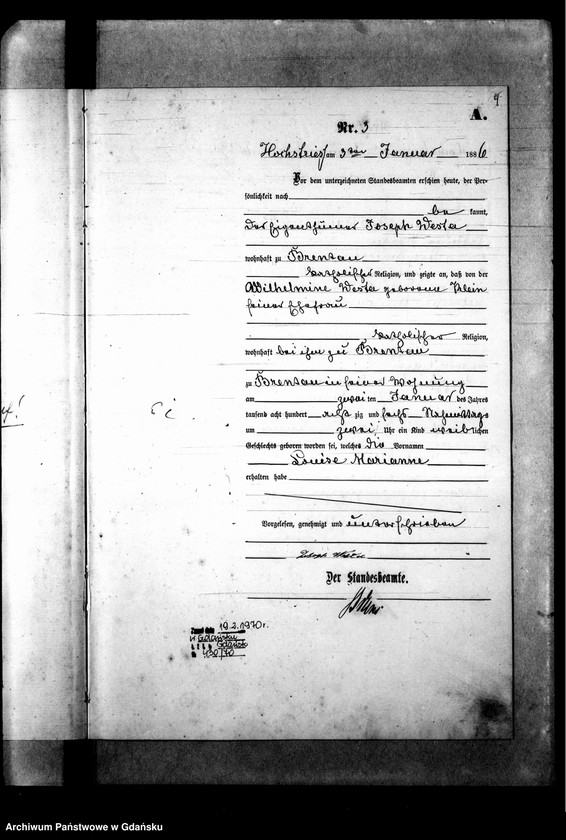 4
A.
Nr. 3
Hochstrieß am 3ten Januar 1886
Vor dem unterzeichneten Standesbeamten erschien heute, der Per-
sönlichkeit nach
be kannt,
der Eigenthümer Joseph Westa
wohnhaft zu Brentau
katholischer Religion, und zeigte an, daß von der
Wilhelmine Westa geborene Klein
seiner Ehefrau
katholischer Religion,
wohnhaft bei ihm zu Brentau
zu Brentau in seiner Wohnung
am zwei ten Januar des Jahres
tausend acht hundert acht zig und sechs Nachmittags
um zwei Uhr ein Kind weib lichen
Geschlechts geboren worden sei, welches die Vornamen
Louise Marianne
erhalten habe
Vorgelesen, genehmigt und unterschrieben
Joseph
Der Standesbeamte.
19.2.1970 r.
w Gdańsku
Gdańsk
430/70
Archiwum Państwowe w Gdańsku